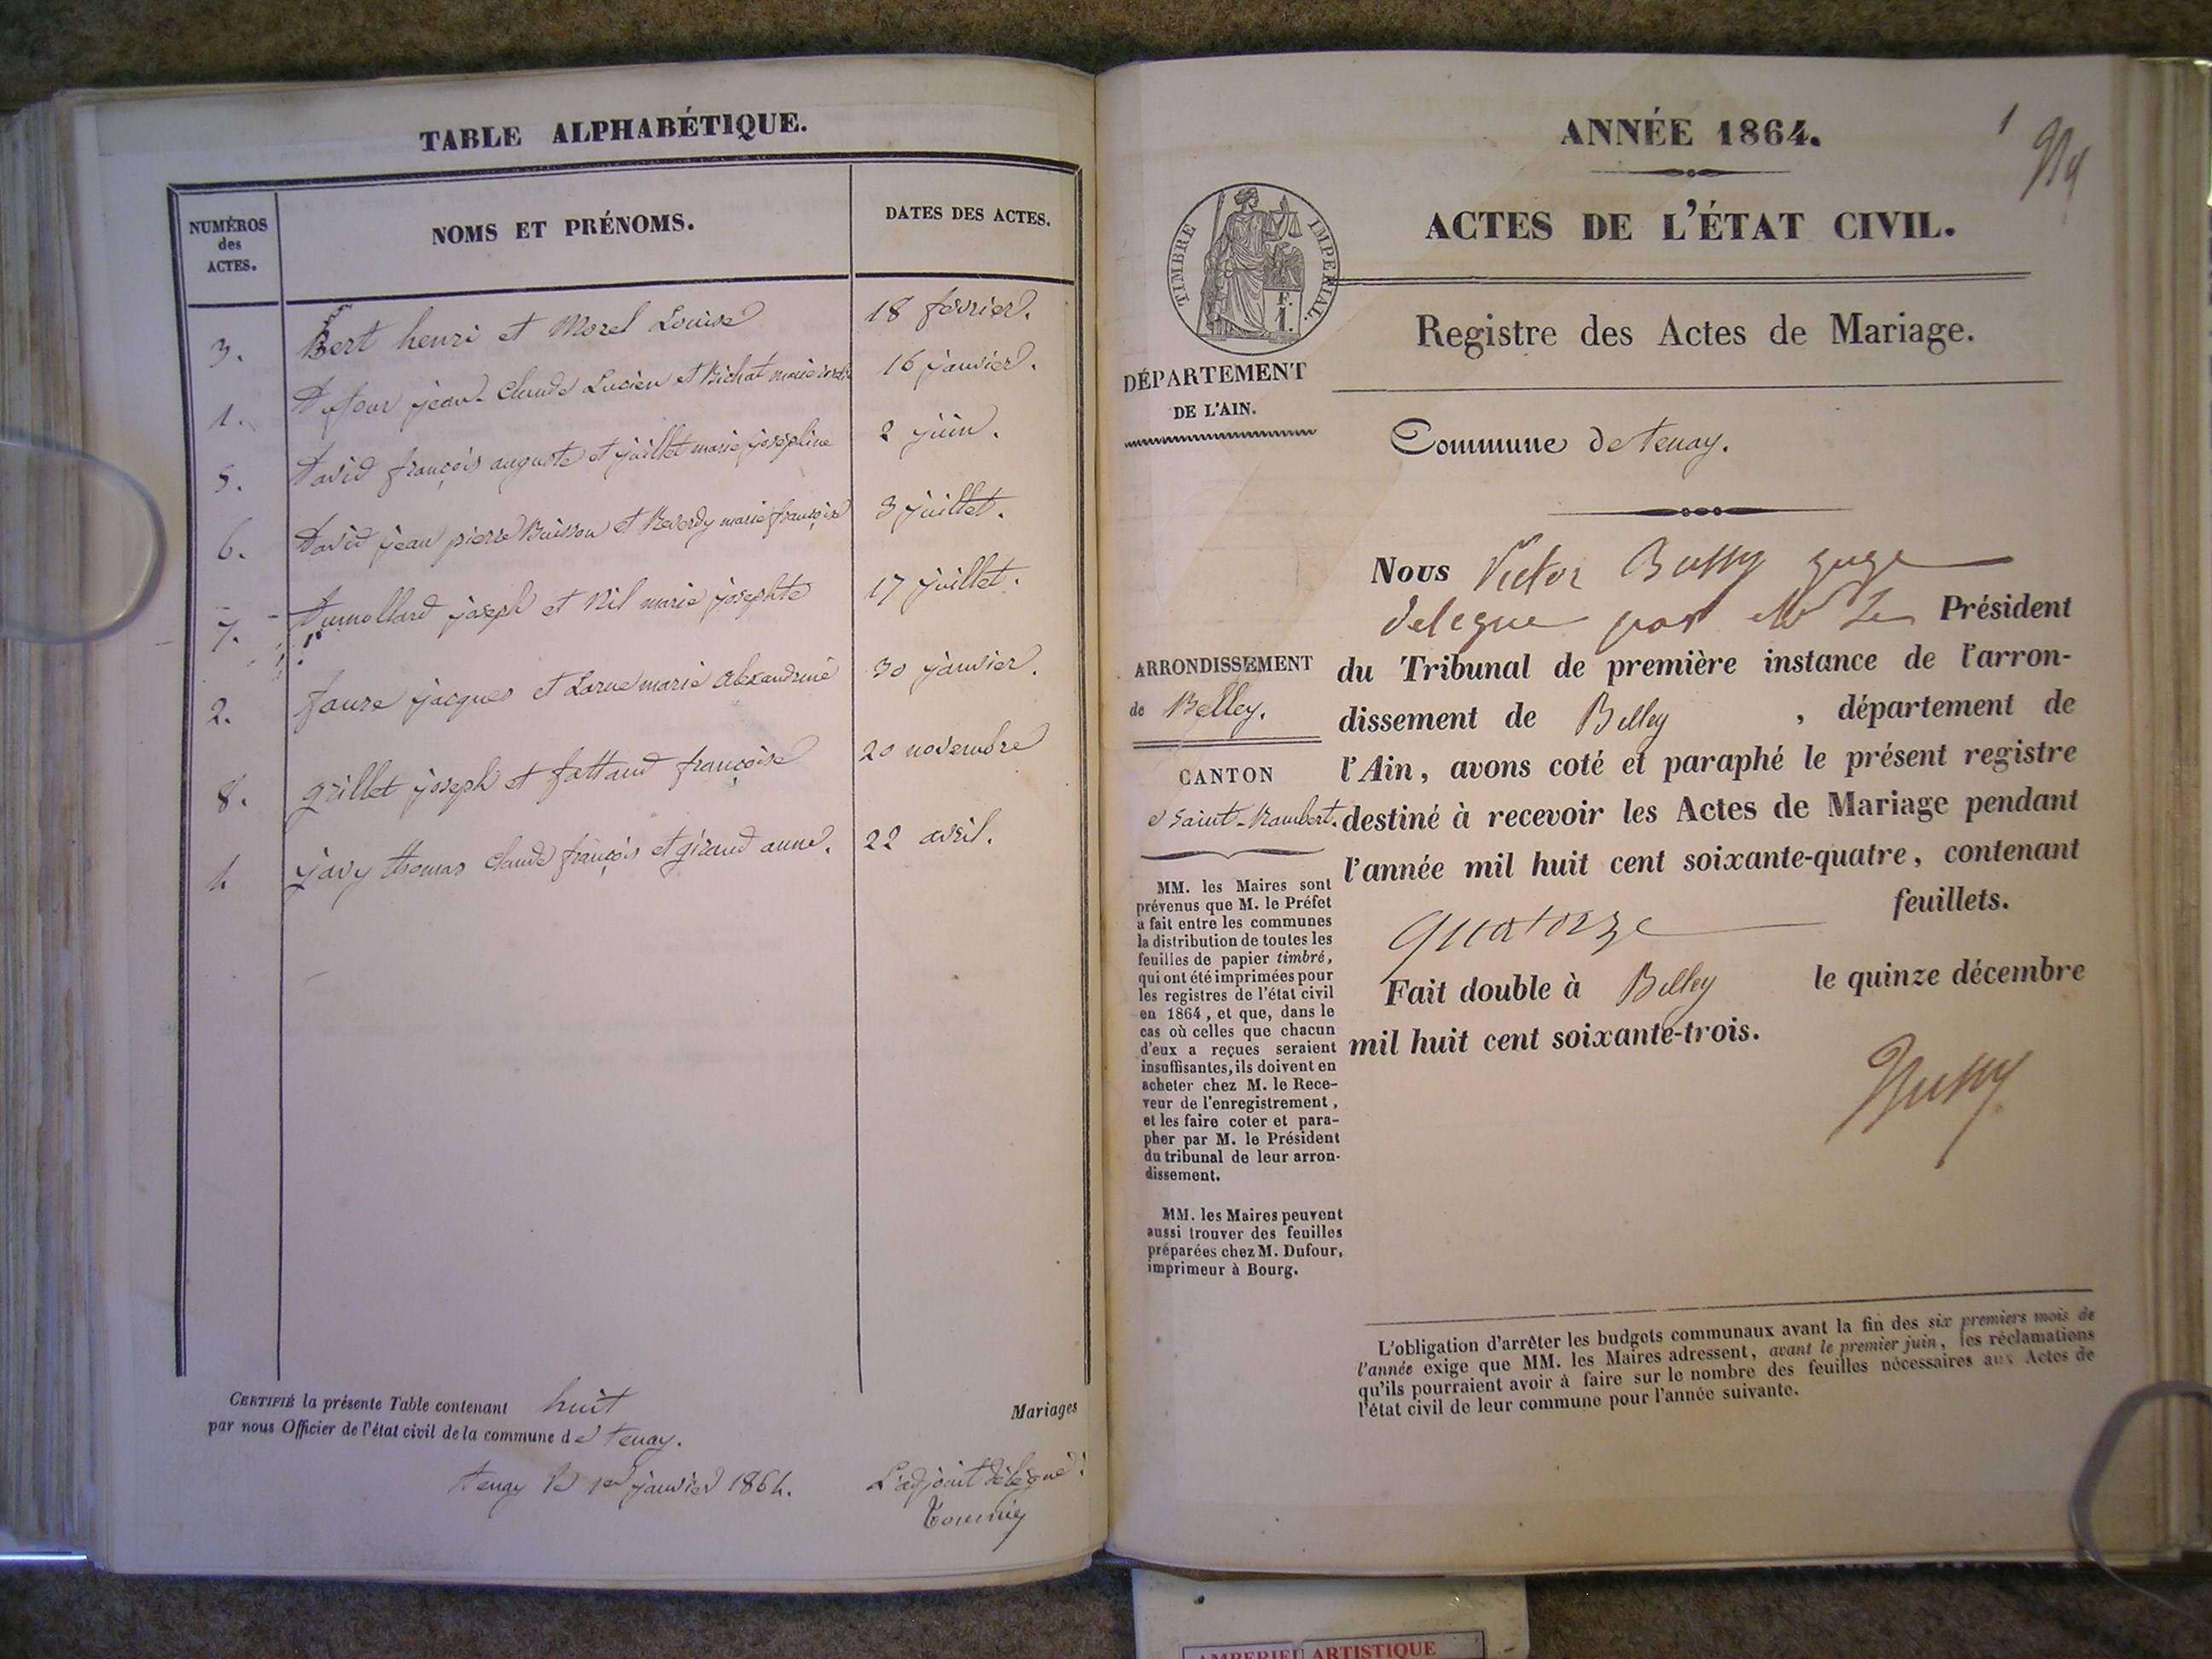 TABLE ALPHABÉTIQUE.
NUMÉROS
des
ACTES.
NOMS ET PRÉNOMS.
DATES DES ACTES.
3. Bert henri et Morel Louise 18 février.
1. Dufour jean-Claude Lucien et Bichat marie 16 janvier.
5. David françois auguste et juillet marie joséphine 2 juin.
6. David jean pierre Buisson et Reverdy marie françoise 3 juillet.
7. Dumollard joseph et Nil marie josephte 17 juillet.
2. faure jacques et Larue marie Alexandrine 30 janvier.
8. grillet joseph et fattaud françoise 20 novembre
4. javy thomas Claude françois et giraud anne. 22 avril.
CERTIFIÉ la présente Table contenant huit Mariages
par nous Officier de l'état civil de la commune de tenay.
tenay le 1er janvier 1864. L'adjoint délégué:
ANNÉE 1864.
1
TIMBRE IMPÉRIAL.
ACTES DE L'ÉTAT CIVIL.
Registre des Actes de Mariage.
DÉPARTEMENT
DE L'AIN.
Commune de tenay.
ARRONDISSEMENT
de Belley.
CANTON
de Saint-Rambert.
MM. les Maires sont
prévenus que M. le Préfet
a fait entre les communes
la distribution de toutes les
feuilles de papier timbré,
qui ont été imprimées pour
les registres de l'état civil
en 1864, et que, dans le
cas où celles que chacun
d'eux a reçues seraient
insuffisantes, ils doivent en
acheter chez M. le Rece-
veur de l'enregistrement,
et les faire coter et para-
pher par M. le Président
du tribunal de leur arron-
dissement.
MM. les Maires peuvent
aussi trouver des feuilles
préparées chez M. Dufour,
imprimeur à Bourg.
Nous Victor Bussy juge
delegue par Mr Le Président
du Tribunal de première instance de l'arron-
dissement de Belley, département de
l'Ain, avons coté et paraphé le présent registre
destiné à recevoir les Actes de Mariage pendant
l'année mil huit cent soixante-quatre, contenant
quatorze feuillets.
Fait double à Belley le quinze décembre
mil huit cent soixante-trois.
Bussy
L'obligation d'arrêter les budgets communaux avant la fin des six premiers mois de
l'année exige que MM. les Maires adressent, avant le premier juin, les réclamations
qu'ils pourraient avoir à faire sur le nombre des feuilles nécessaires aux Actes de
l'état civil de leur commune pour l'année suivante.
AMBERIEU ARTISTIQUE